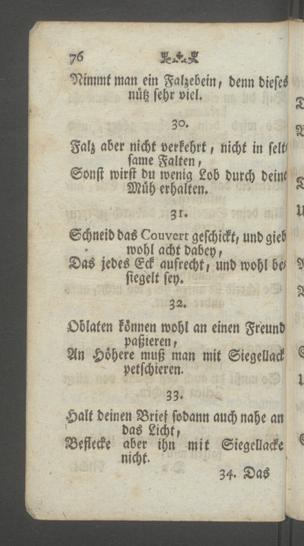 76
Nimmt man ein Falzebein, denn dieses
nütz sehr viel.
30.
Falz aber nicht verkehrt, nicht in selt
same Falten,
Sonst wirst du wenig Lob durch deine
Müh erhalten.
31.
Schneid das Couvert geschickt, und gieb
wohl acht dabey,
Das jedes Eck aufrecht, und wohl be-
siegelt sey.
32.
Oblaten können wohl an einen Freund
paßieren,
An Höhere muß man mit Siegellack
petschieren.
33.
Halt deinen Brief sodann auch nahe an
das Licht,
Beflecke aber ihn mit Siegellacke
nicht.
34. Das